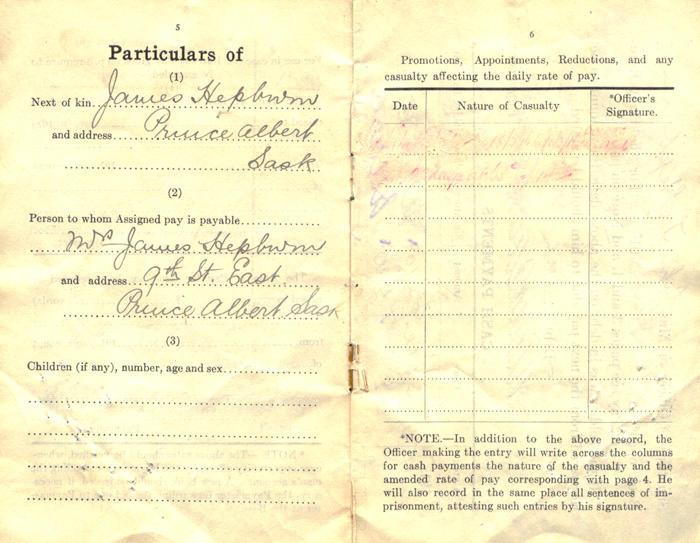 5
Particulars of
(1)
Next of kin. James Hepburn
and address. Prince Albert
Sask
(2)
Person to whom Assigned pay is payable
Mrs James Hepburn
and address 9th St. East.
Prince Albert Sask
(3)
Children (if any), number, age and sex
6
Promotions, Appointments, Reductions, and any
casualty affecting the daily rate of pay.
Date Nature of Casualty *Officer's
Signature.
*NOTE.—In addition to the above record, the
Officer making the entry will write across the columns
for cash payments the nature of the casualty and the
amended rate of pay corresponding with page 4. He
will also record in the same place all sentences of im-
prisonment, attesting such entries by his signature.